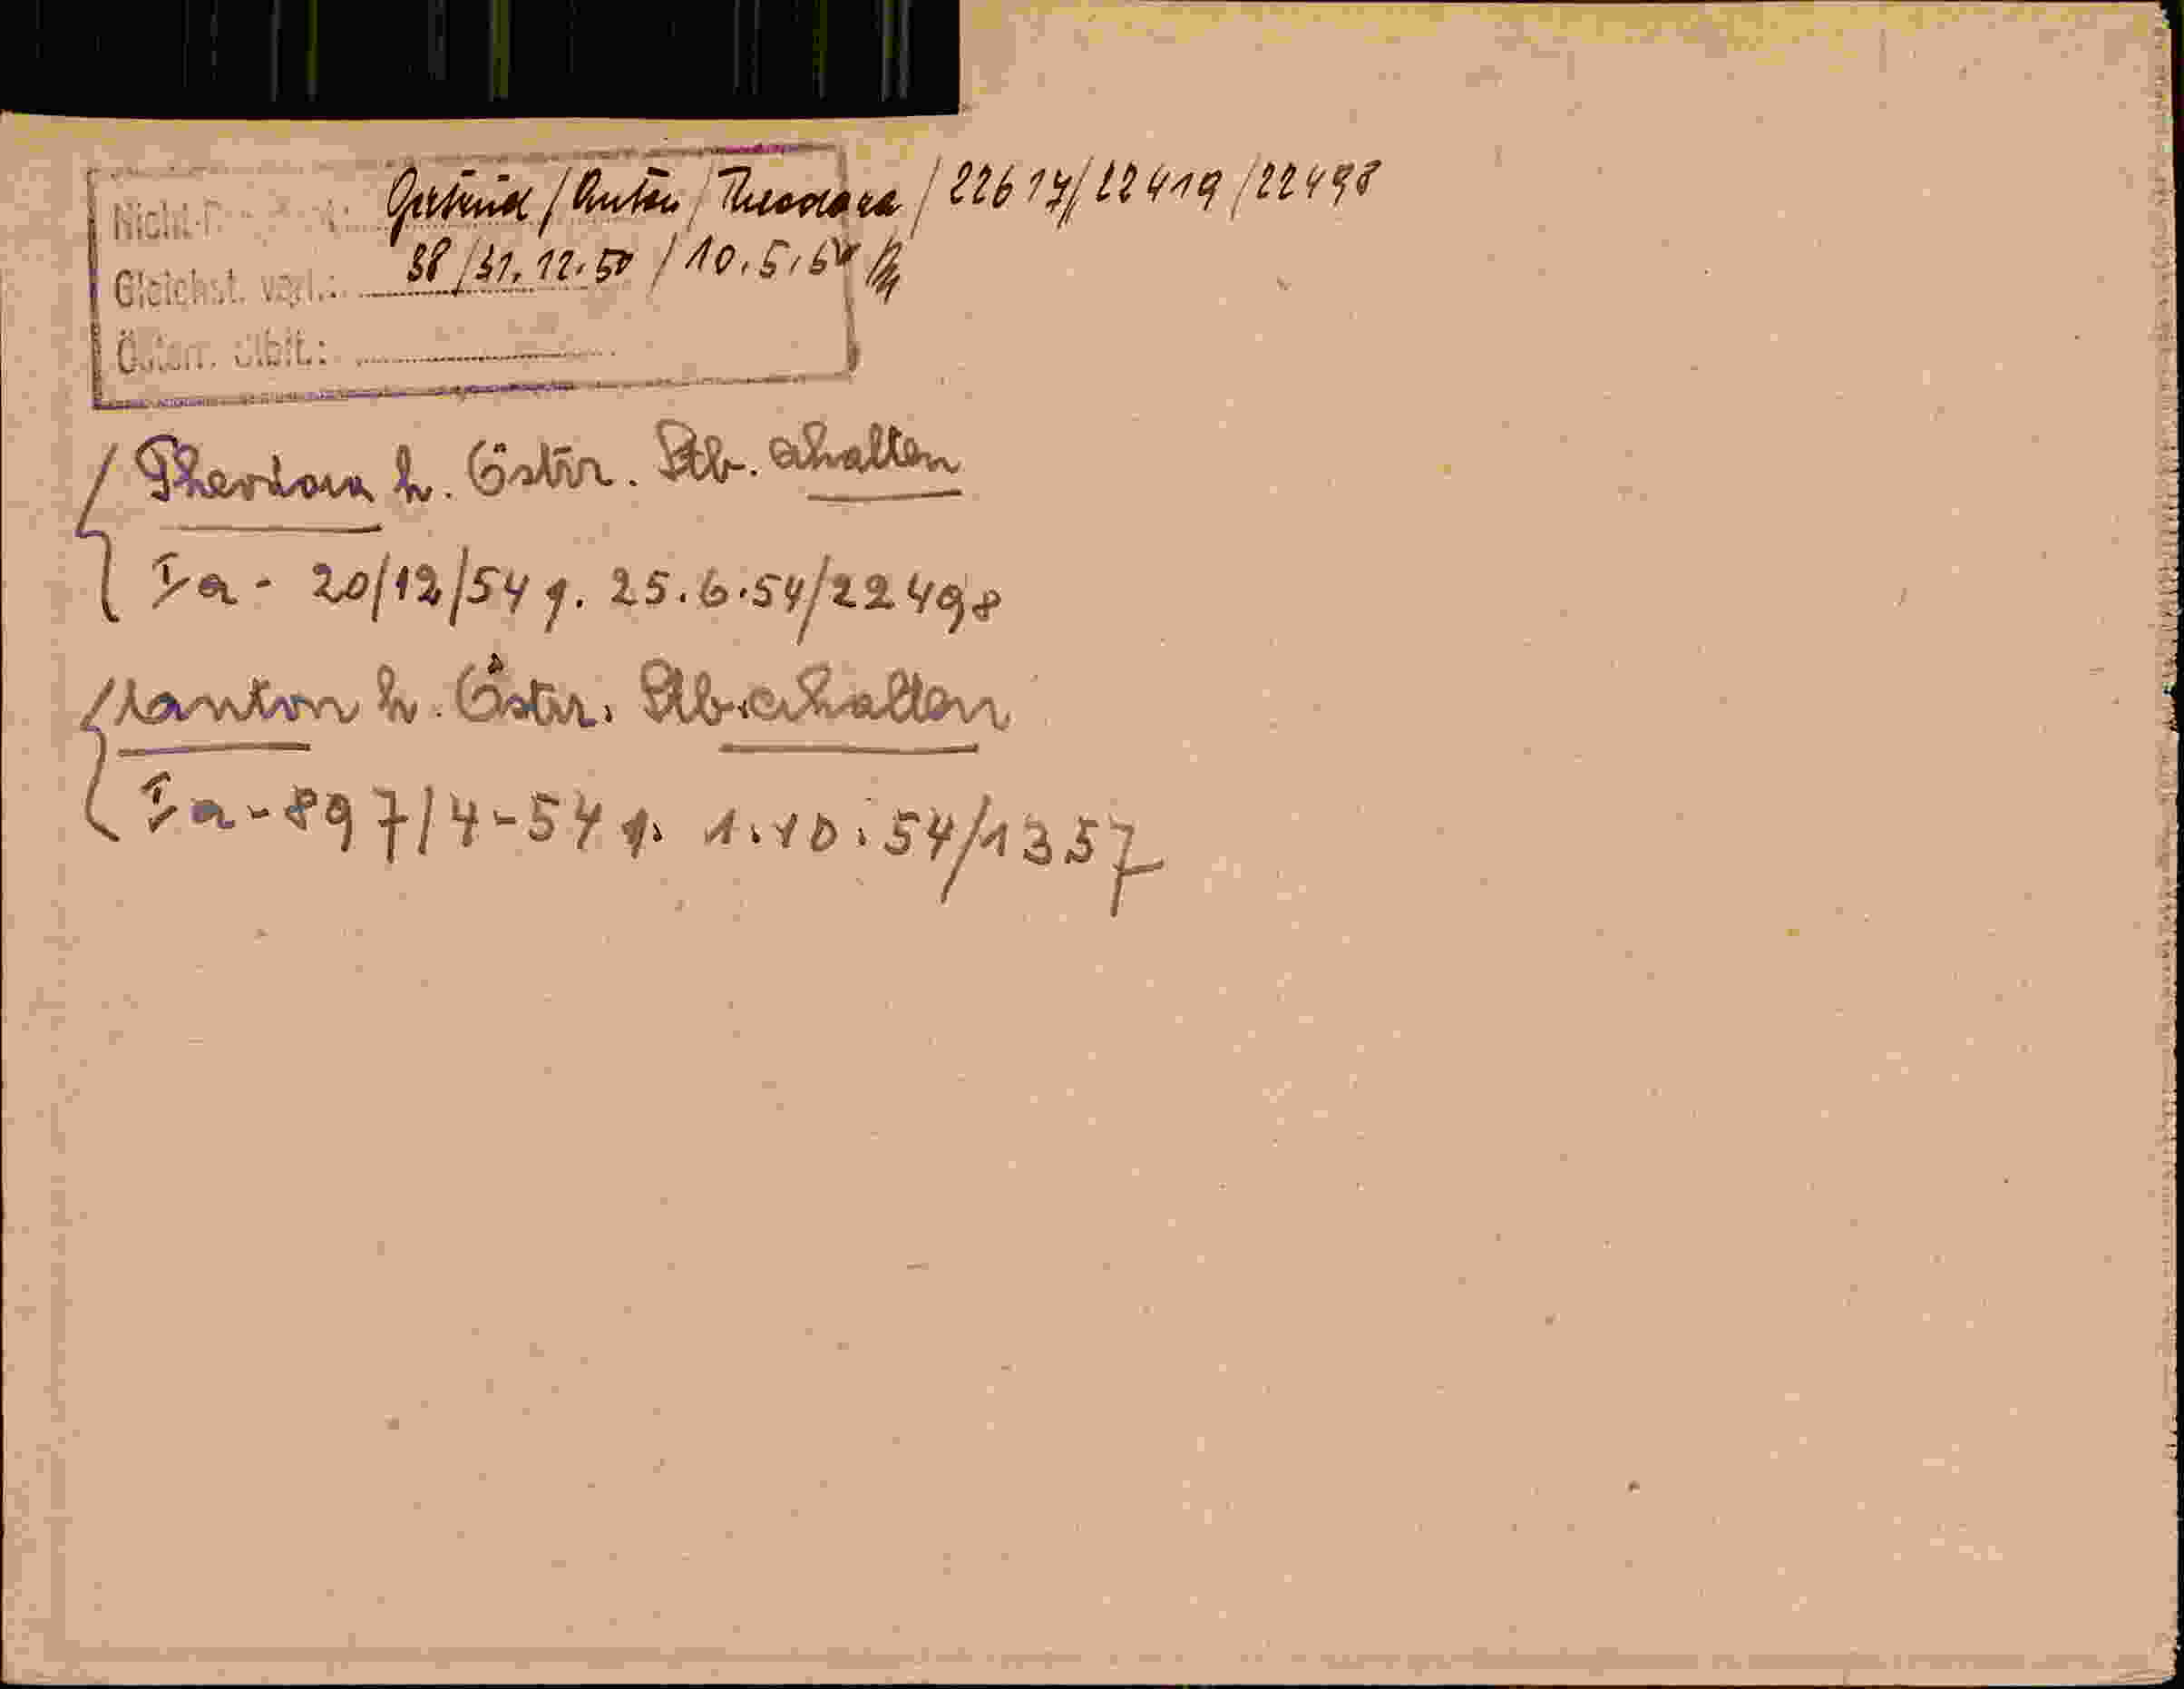 Gertrud / Anton / Theodora / 22617 / 22419 / 22498
Gleichst. vorl.: 38 / 31.12.50 / 10.5.54
Österr. Stbft.:
Theodora h. Östr. Stb. erhalten
Ia - 20/12/54 g. 25.6.54/22498
Anton h. Östr. Stb. erhalten
Ia - 897/4-54 g. 1.10.54/1357